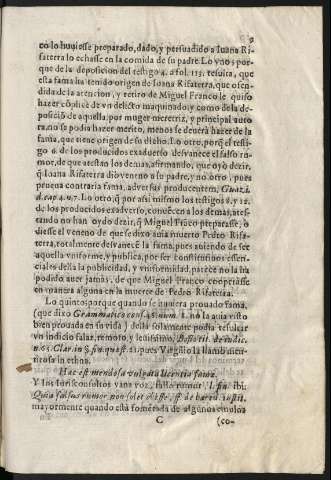 9
co lo huuiesse preparado, dado, y persuadido a Iuana Ri-
faterra lo echasse en la comida de su padre. Lo vno: por-
que de la deposicion del testigo 4. a fol. 113. resulta, que
esta fama ha tenido origen de Ioana Rifaterra, que ofen-
dida de la atencion, y retiro de Miguel Franco le quiso
hazer cõplice de vn delicto maquinado, y como de la de-
posiciõ de aquella, por muger meretriz, y principal auto
ra, no se podia hazer merito, menos se deuerà hazer de la
fama, que tiene origen de su dicho. Lo otro, porq̃ el testi-
go 6. de los producidos ex aduerso desvanece el falso ru-
mor, de que atestan los demas, afirmando, que oyò dezir,
q̃ Ioana Rifaterra diò veneno a su padre, y no otro, pues
prueua contraria fama, aduersus producentem,
d. cap. 4. n. 7. Lo otro, q̃ por assi mismo los testigos 8. y 12.
de los producidos ex aduerso, convẽcen a los demas, ates-
tando no han oydo dezir, q̃ Miguel Frãco preparasse, o
diesse el veneno de que se dixo auia muerto Pedro Rifa-
terra, totalmente desvanecẽ la fama, pues auiendo de ser
aquella vniforme, y publica, por ser constitutiuos essen-
ciales della la publicidad, y vniformidad, parece no la ha
podido auer jamàs, de que Miguel Franco cooperasse
en manera alguna en la muerte de Pedro Rifaterra.
Lo quinto, porque quando se huuiera prouado fama,
(que dixo Grammatico cons. 48. num. 1. no la auia visto
bien prouada en su vida) della solamente podia resultar
vn indicio falaz, remoto, y leuissimo,
pues Virgilio la llamò men-
tirosa
Hac est mendosa vulgata licentia fama.
Y los Iurisconsultos vana voz, falso rumor,
Quia falsus rumor non solet
mayormente quando està fomentada de algunos emulos
C
(co-